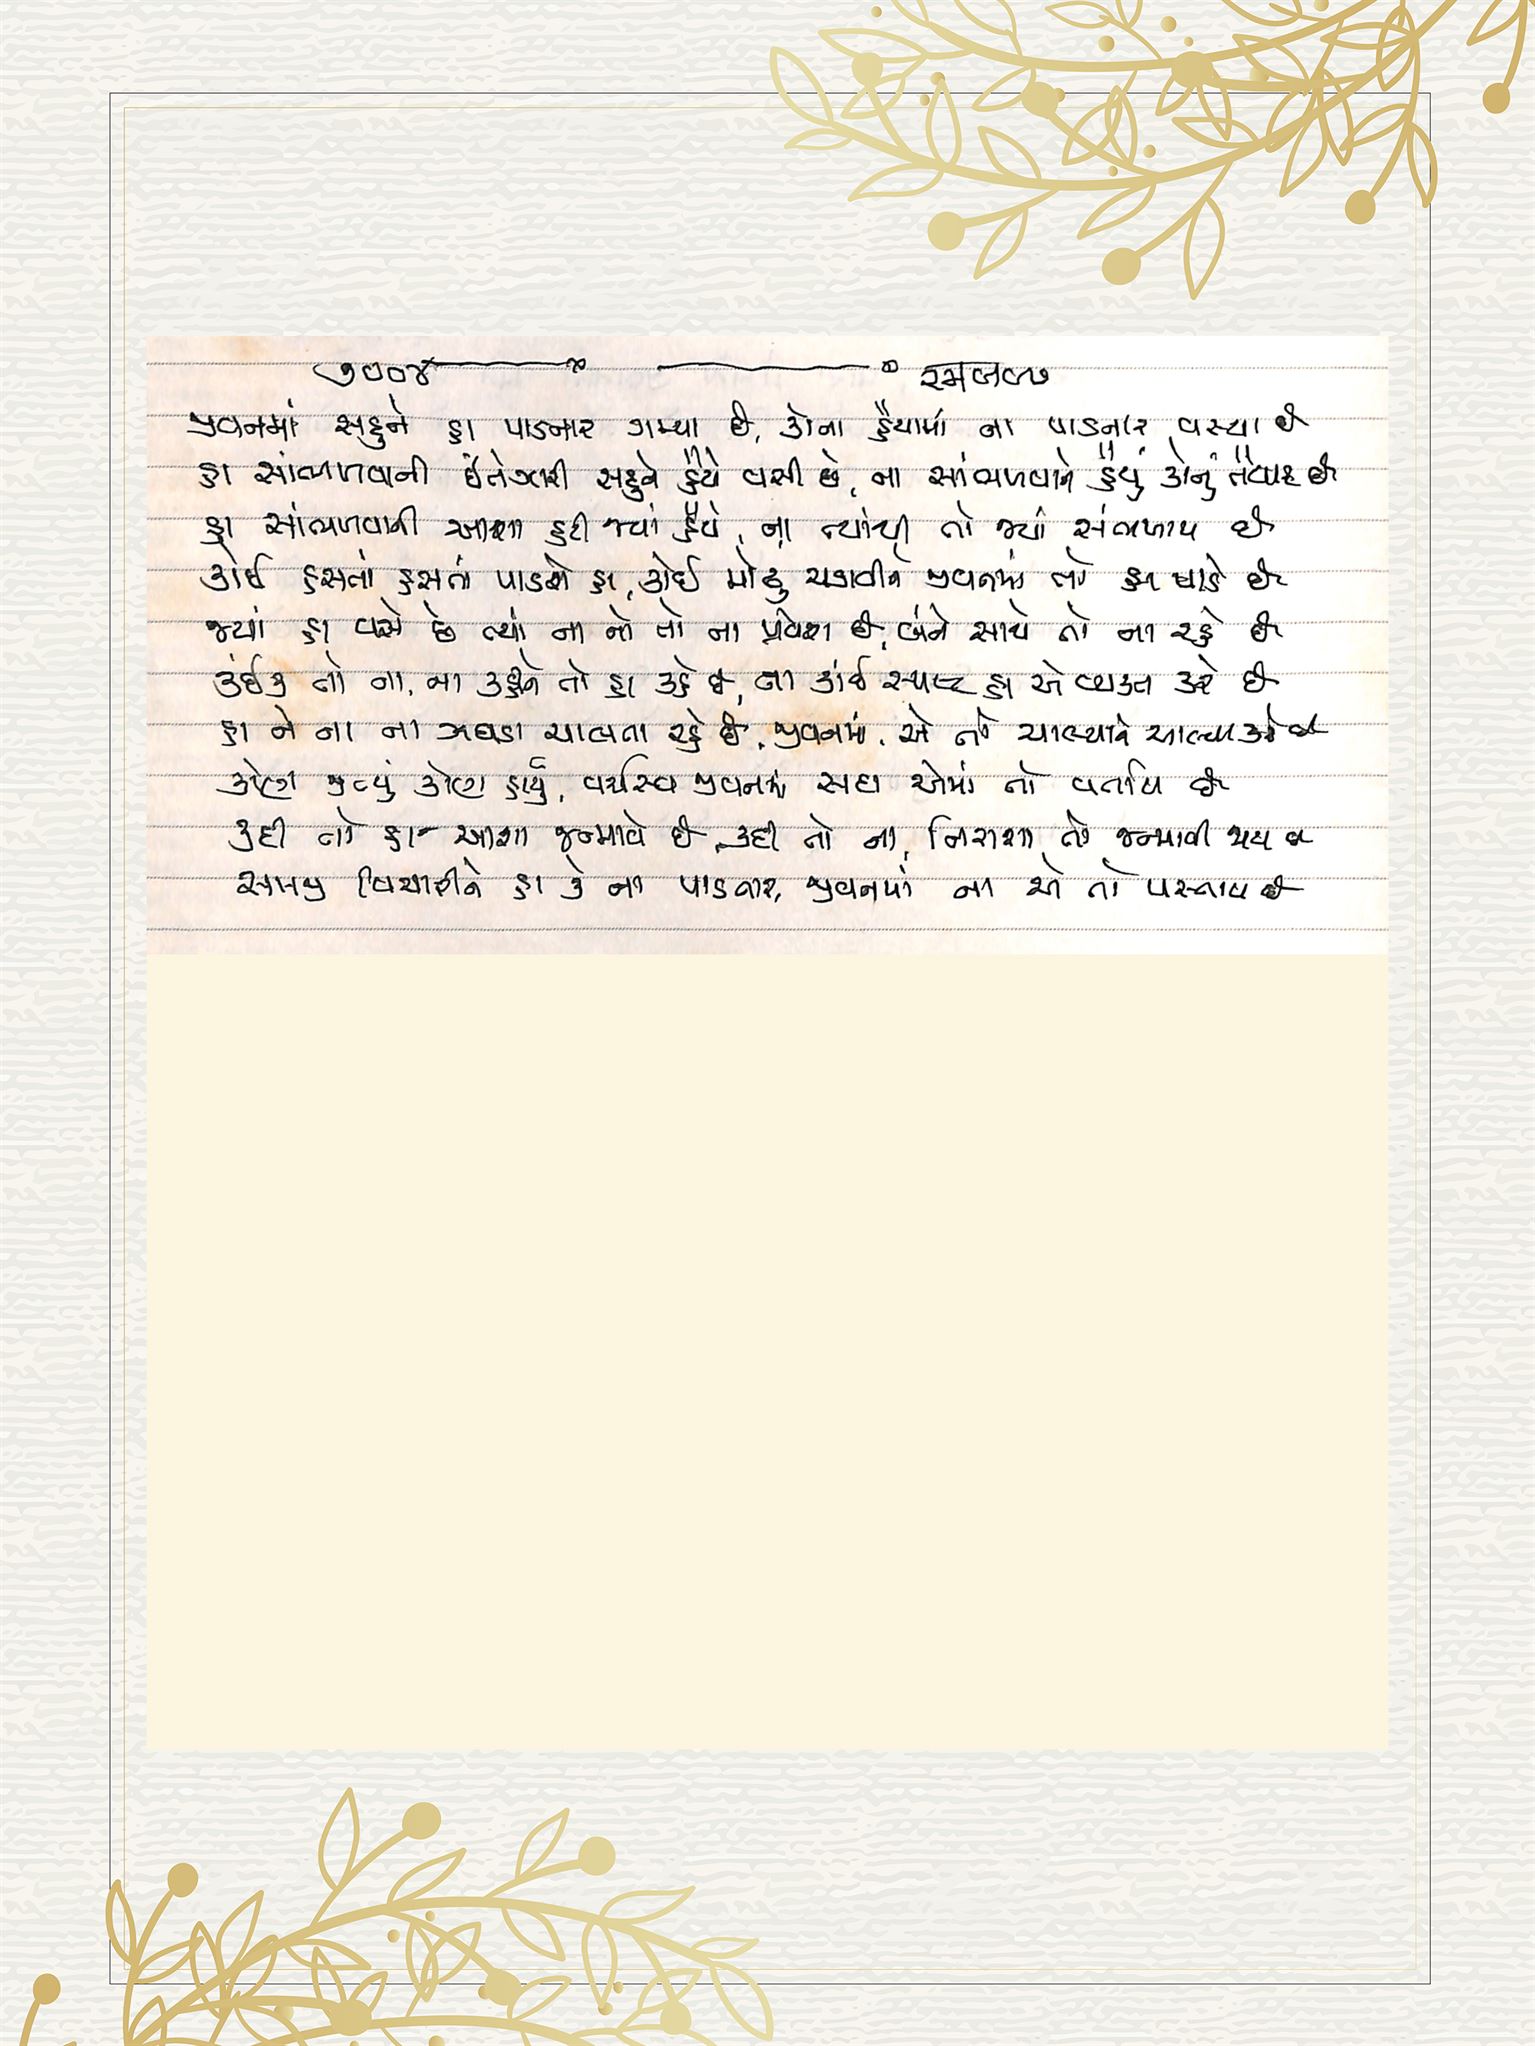 જીવનમાં સહુને હા પાડનાર ગમ્યા છે, કોના હૈયામાં ના પાડનાર વસ્યા છે
હા સાંભળવાની ઇંતેજારી સહુને હૈયે વસી છે, ના સાંભળવાને હૈયું કોનું તૈયાર છે
હા સાંભળવાની આશા હટી જ્યાં હૈયે, ના ત્યાંથી તો જ્યાં સંભળાય છે
કોઈ હસતાં હસતાં પાડશે હા, કોઈ મોઢું ચડાવીને જીવનમાં તો હા પાડે છે
જ્યાં હા વસે છે ત્યાં ના નો તો ના પ્રવેશ છે, બંને સાથે તો ના રહે છે
કંઈક તો ના, ના કહીને તો હા કહે છે, ના કાંઈ સ્પષ્ટ હા એ વ્યક્ત કરે છે
હા ને ના ના ઝઘડા ચાલતા રહે છે, જીવનમાં, એ તો ચાલ્યાને ચાલ્યા કરે છે
કોણ જીત્યું કોણ હાર્યું, વર્ચસ્વ જીવનમાં સદા એમાં તો વર્તાય છે
કદી તો હા આશા જન્માવે છે, કદી તો ના, નિરાશા તો જન્માવી જાય છે
સમજી વિચારીને હા કે ના પાડનાર, જીવનમાં ના એ તો પસ્તાય છે